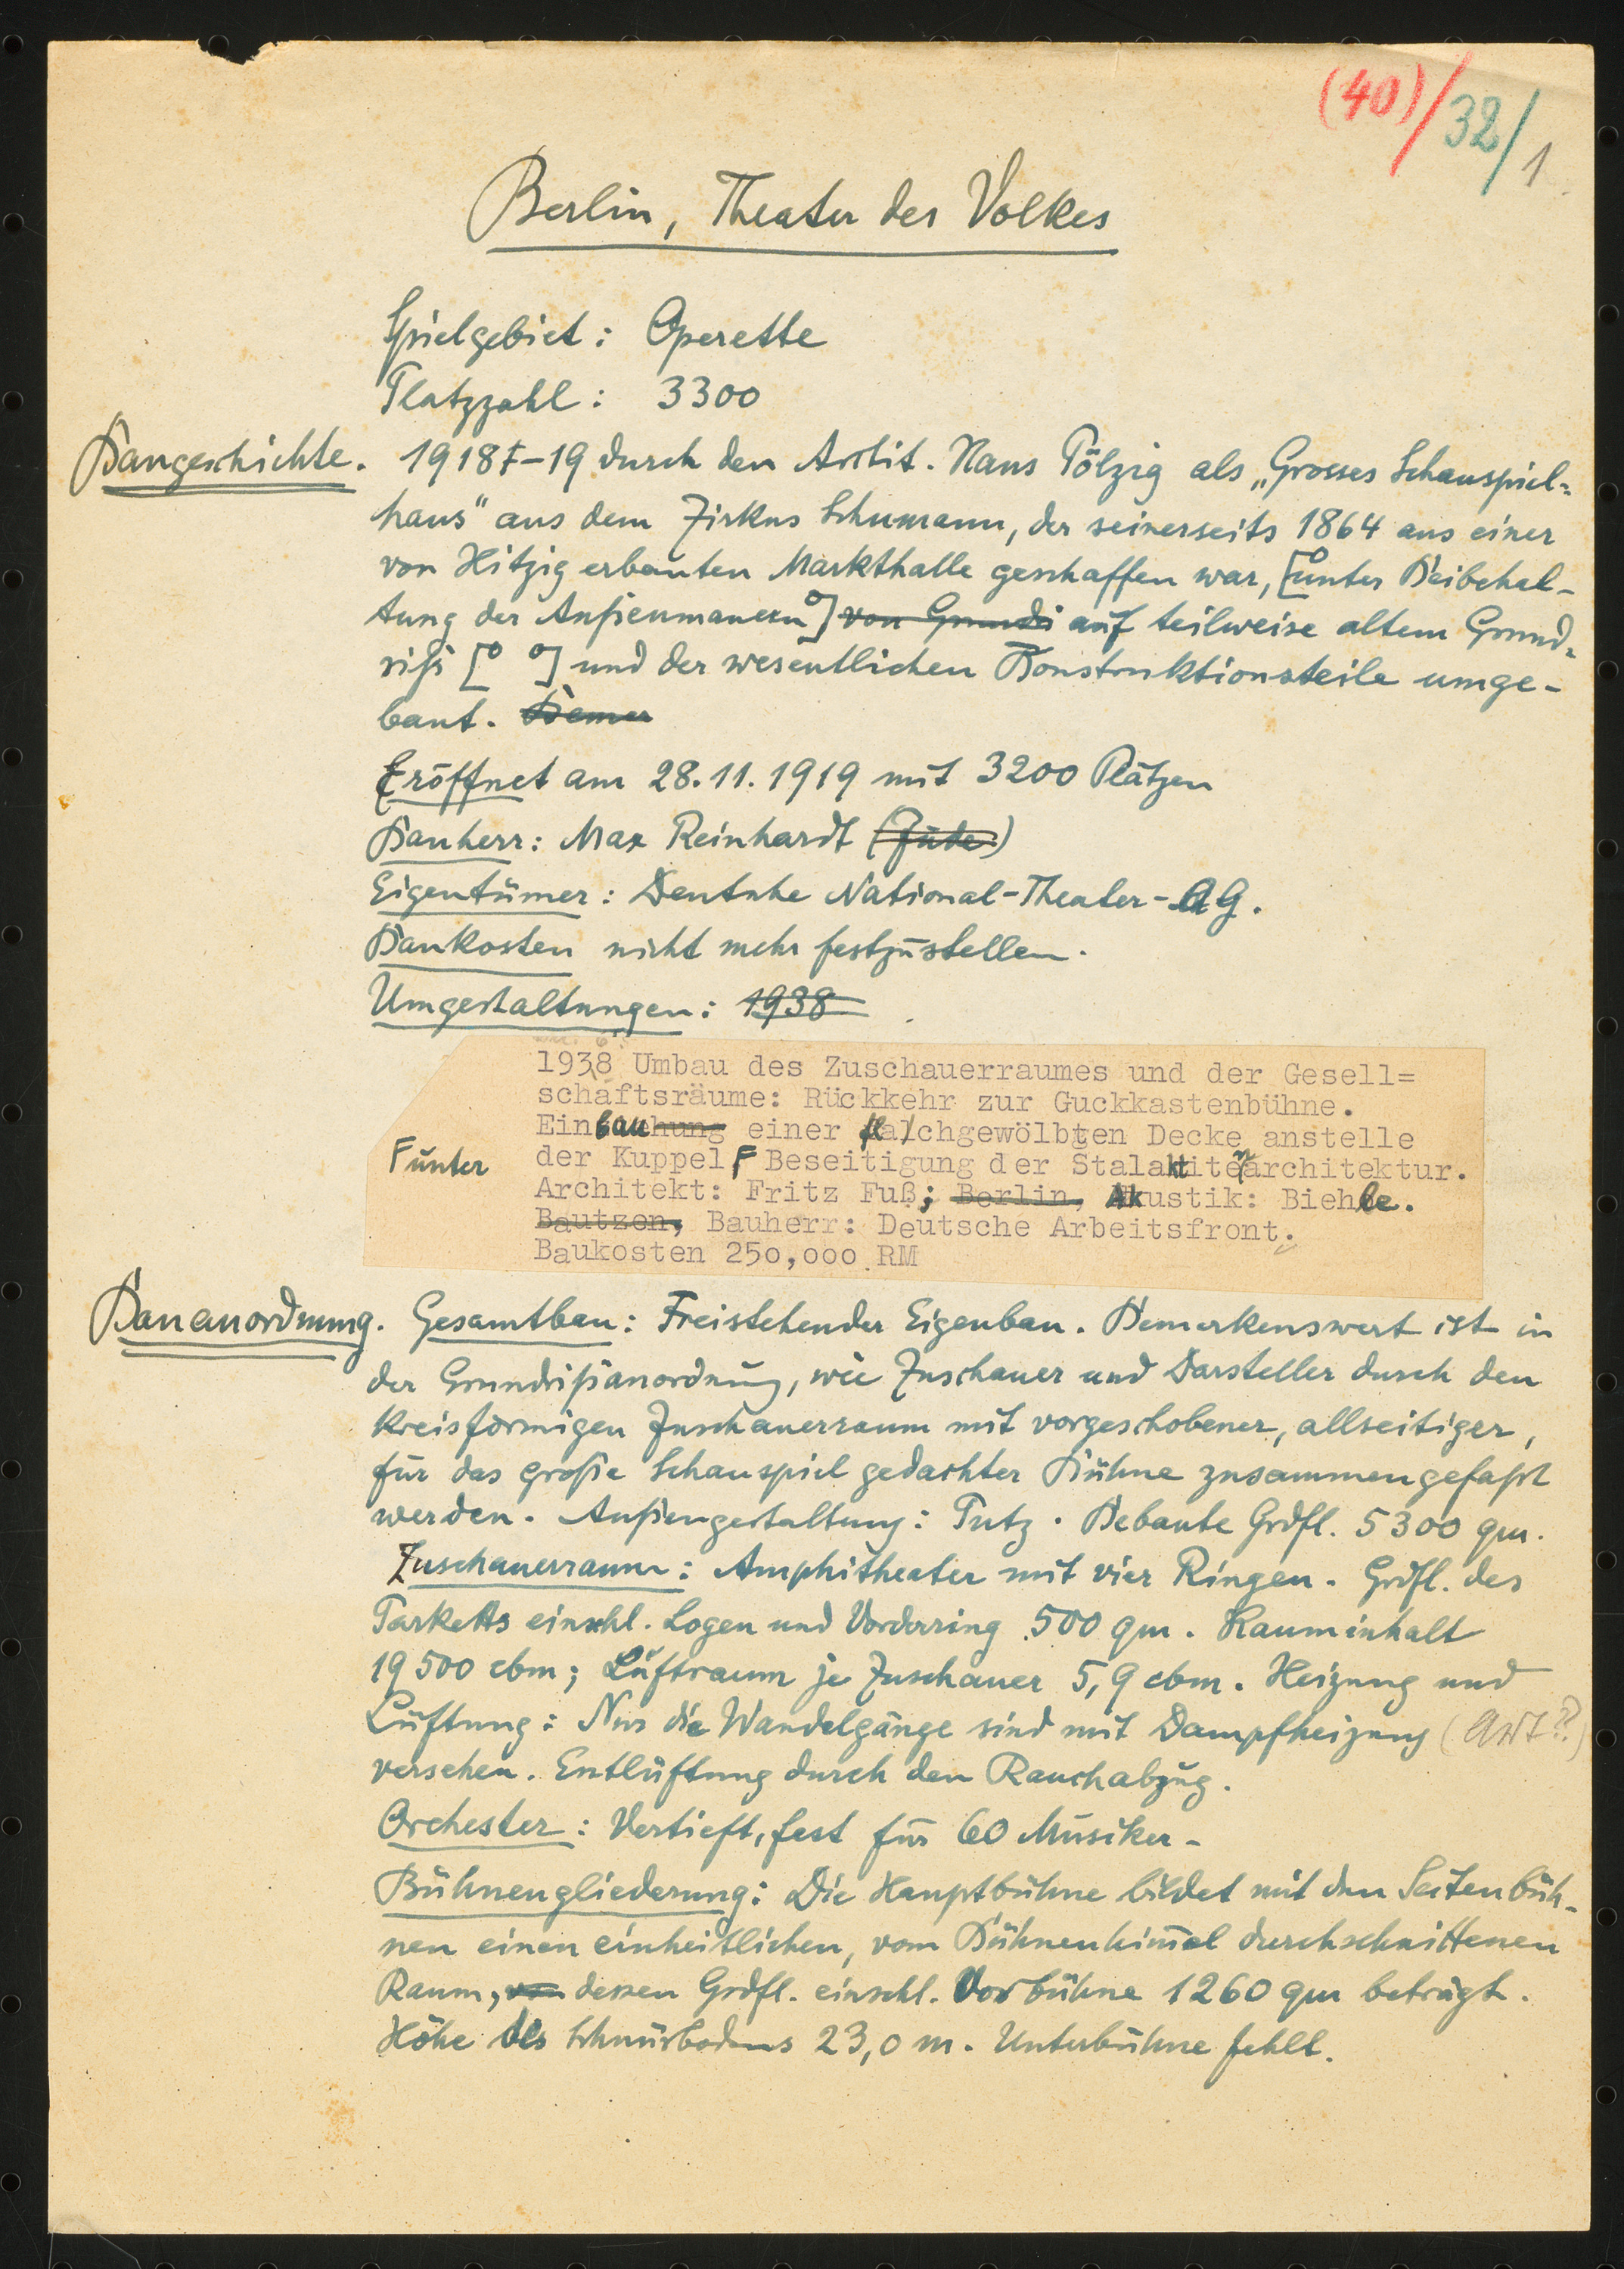 (40)/32/1
Berlin, Theater des Volkes
Spielgebiet: Operette
Platzzahl: 3300
Baugeschichte. 1918-19 durch den Archit. Hans Pölzig als „Grosses Schauspiel=
haus" aus dem Zirkus Schumann, der seinerseits 1864 aus einer
von Hitzig erbauten Markthalle geschaffen war, [unter Beibehal-
tung der Außenmauern] von Grundi auf teilweise altem Grund=
riß [ ] und der wesentlichen Konstruktionsteile umge-
baut. Bemer
Eröffnet am 28.11.1919 mit 3200 Plätzen
Bauherr: Max Reinhardt (Jude)
Eigentümer: Deutsche National-Theater-AG.
Baukosten nicht mehr festzustellen.
Umgestaltungen: 1938
1938 Umbau des Zuschauerraumes und der Gesell=
schaftsräume: Rückkehr zur Guckkastenbühne.
Einbau einer flachgewölbten Decke anstelle
F unter der Kuppel F Beseitigung der Stalaktitenarchitektur.
Architekt: Fritz Fuß; Berlin, Akustik: Biehle.
Bautzen, Bauherr: Deutsche Arbeitsfront.
Baukosten 250,000 RM
Bauanordnung. Gesamtbau: Freistehender Eigenbau. Bemerkenswert ist in
der Grundrißanordnung, wie Zuschauer und Darsteller durch den
kreisförmigen Zuschauerraum mit vorgeschobener, allseitiger,
für das große Schauspiel gedachter Bühne zusammengefaßt
werden. Außengestaltung: Putz. Bebaute Grdfl. 5300 qm.
Zuschauerraum: Amphitheater mit vier Ringen. Grdfl. des
Parketts einschl. Logen und Vorderring 500 qm. Rauminhalt
19500 cbm; Luftraum je Zuschauer 5,9 cbm. Heizung und
Lüftung: Nur die Wandelgänge sind mit Dampfheizung (Art??)
versehen. Entlüftung durch den Rauchabzug.
Orchester: Vertieft, fest für 60 Musiker.
Bühnengliederung: Die Hauptbühne bildet mit den Seitenbüh-
nen einen einheitlichen, vom Bühnenhimmel durchschnittenen
Raum, von dessen Grdfl. einschl. Vorbühne 1260 qm beträgt.
Höhe des Schnürbodens 23,0 m. Unterbühne fehlt.